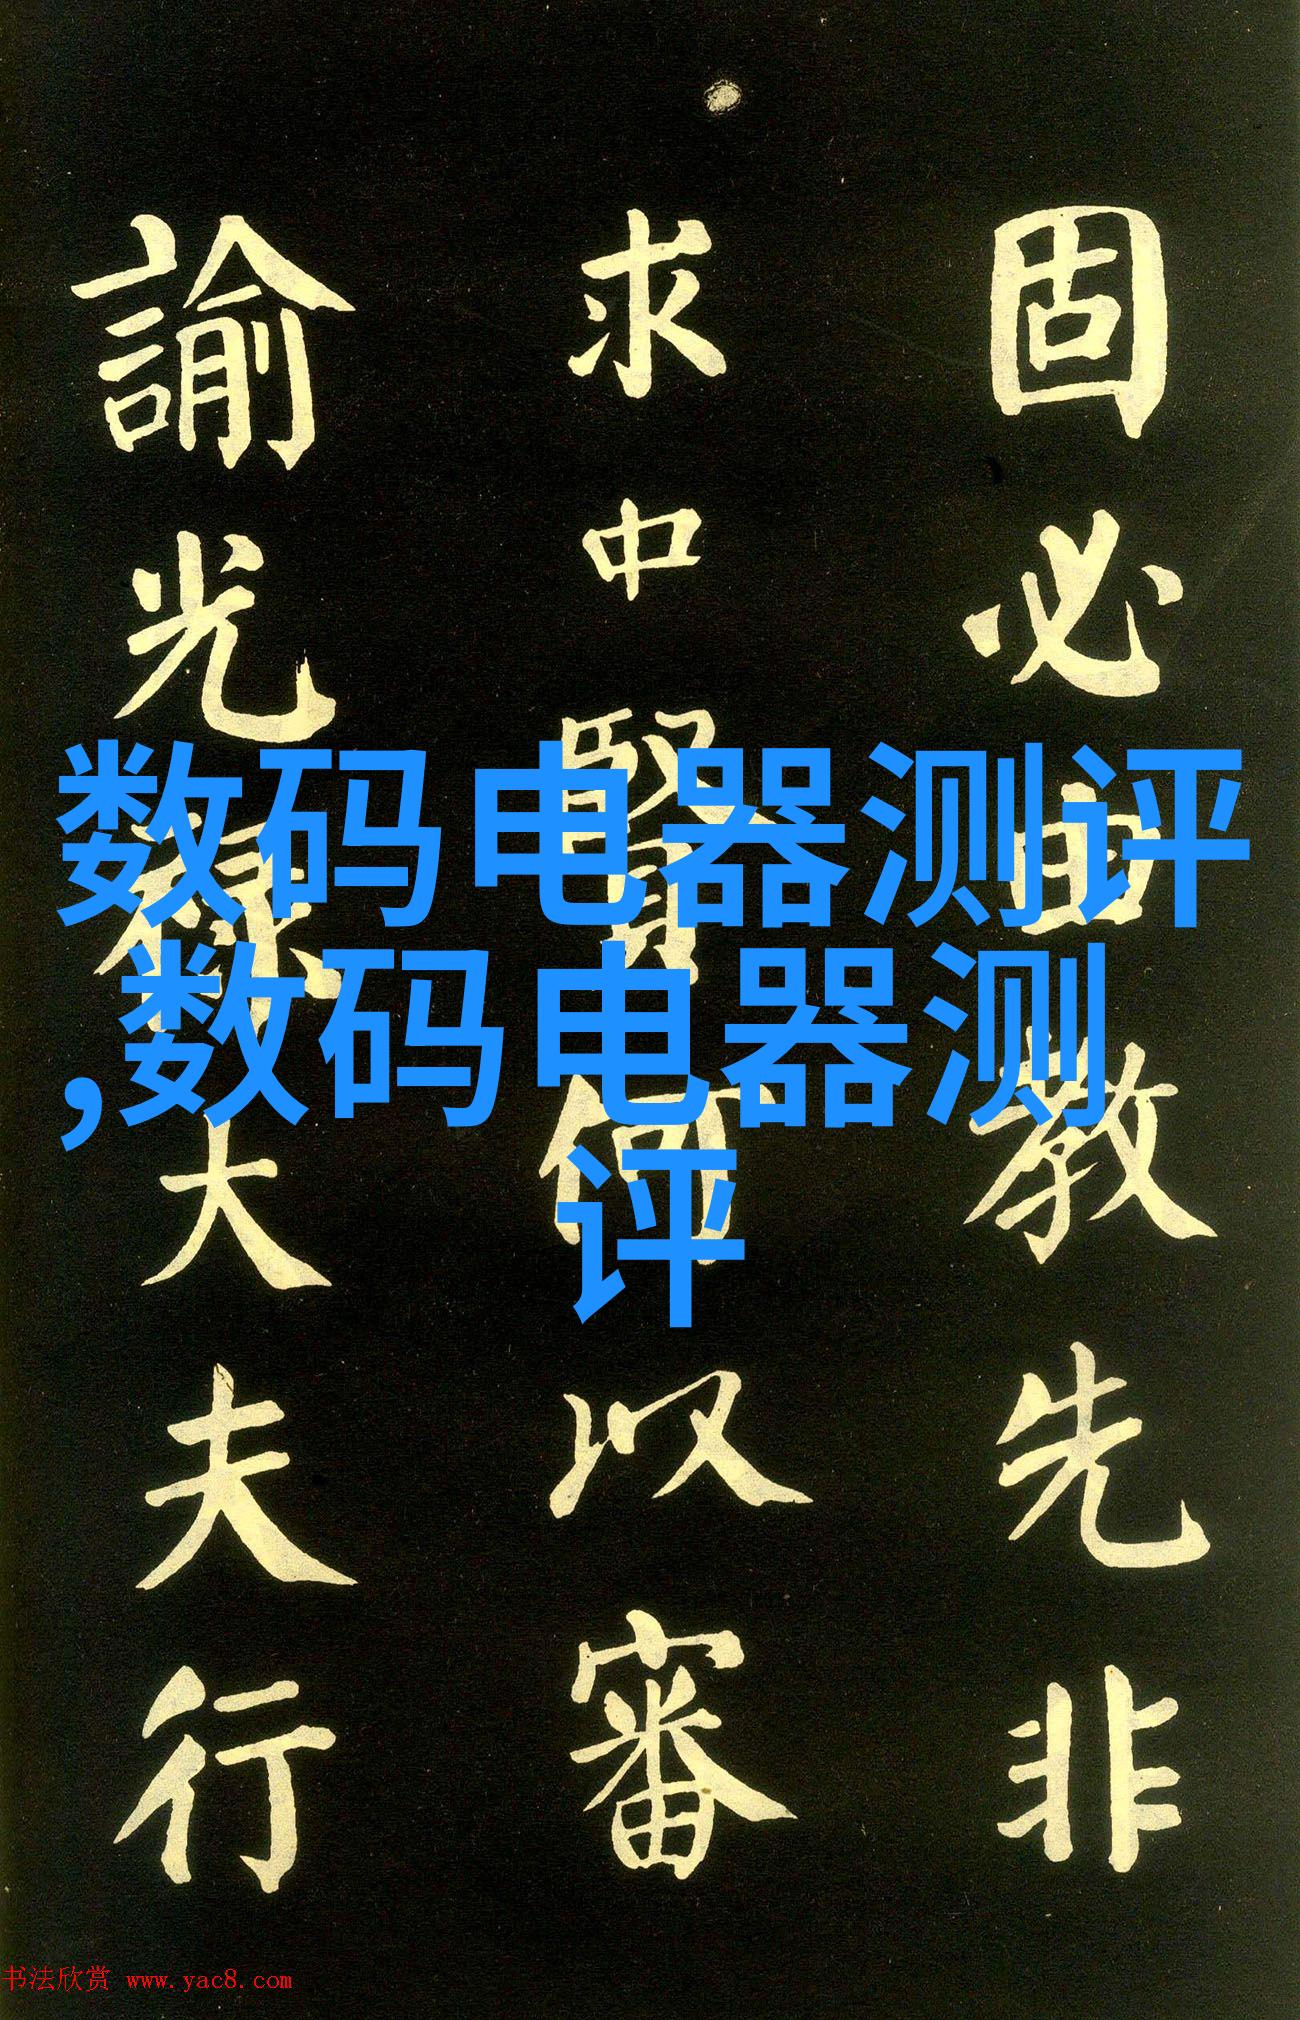 固必由教先非
求中賢何以審
諭光禄大夫行
数码电器测评
,数码电器测
评
书法欣赏 www.yac8.com